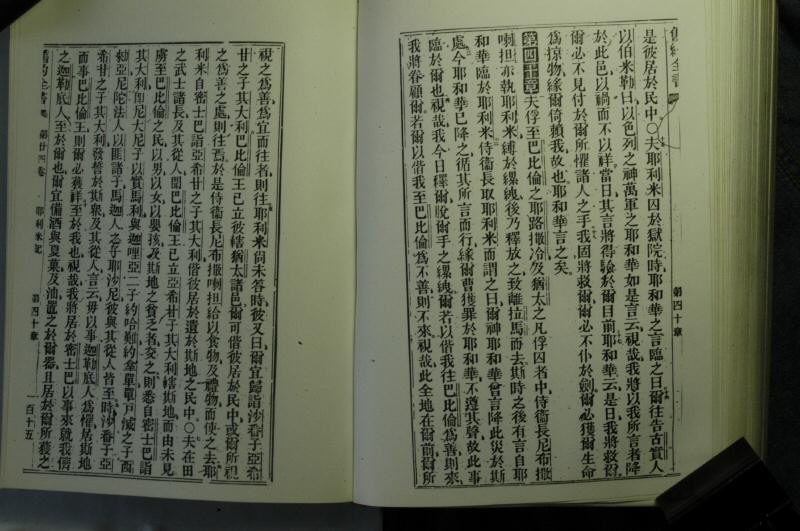 是彼居於民中○夫耶利米囚於獄院時耶和華之言臨之曰爾往告古實人
以伯米勒曰以色列之神萬軍之耶和華如是言云視哉我將以我所言者降
於此邑以禍而不以祥當日其言將得驗於爾目前耶和華云是日我將救爾
爾必不見付於爾所懼諸人之手我固將救爾爾必不仆於劍爾必獲爾生命
為掠物緣爾倚賴我故也耶和華言之矣
第四十章夫俘至巴比倫之耶路撒冷及猶太之凡俘囚者中侍衞長尼布撒
喇担亦執耶利米縛於縲絏後乃釋放之致離拉馬而去斯時之後有言自耶
和華臨於耶利米侍衞長取耶利米而謂之曰爾神耶和華曾言降此災於斯
處今耶和華已降之循其所言而行緣爾曹獲罪於耶和華不遵其聲故此事
臨於爾也視哉我今日釋爾脫爾手之縲絏爾若以偕我往巴比倫為善則來
我將眷顧爾若爾以偕我至巴比倫為不善則不來視哉此全地在爾前爾所
第四十章
視之為善為宜而往者則往耶利米尚未答時彼又曰爾宜歸詣沙番子亞希
甘之子其大利巴比倫王已立彼轄猶太諸邑爾可偕彼居於民中或爾所視
之為善之處則往焉於是侍衞長尼布撒喇担給以食物及禮物而使之去耶
利米自密士巴詣亞希甘之子其大利偕彼居於遺於斯地之民中○夫在田
之武士諸長及其從人聞巴比倫王已立亞希甘子其大利轄斯地而由未見
虜至巴比倫之民以男以女以嬰孩及斯地之貧乏者交之則悉自密士巴詣
其大利即尼大尼子以實馬利與迦哩亞二子約哈難約拿單單戸篾之子西
勑亞尼陀法人以匪諸子馬迦人之子耶沙尼彼與其從人皆至時沙番子亞
希甘之子其大利發誓於斯衆及其從人言云毋以事迦勒底人為懼居斯地
而事巴比倫王則爾必獲祥至於我也視哉我將居於密士巴以事來就我儕
之迦勒底人至於爾也爾宜備酒與夏菓及油置之於爾器且居於爾所獲之
舊約全書 第廿四卷 耶利米記 第四十章 百十五